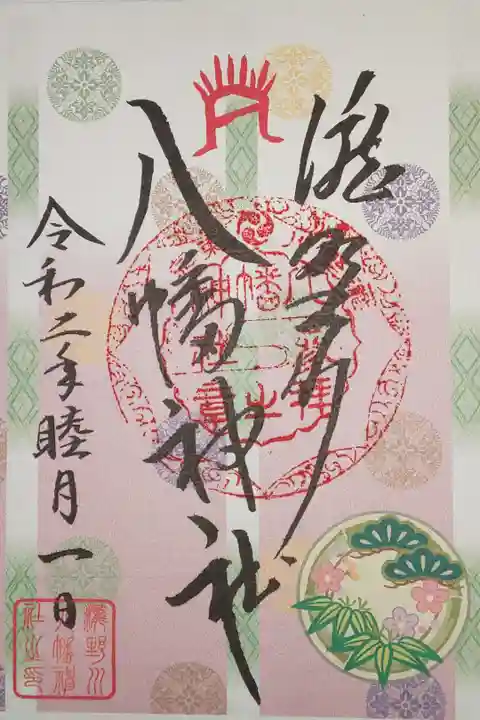 瀧野川
八幡神社
令和二年睦月一日
瀧野川
八幡神
社之印